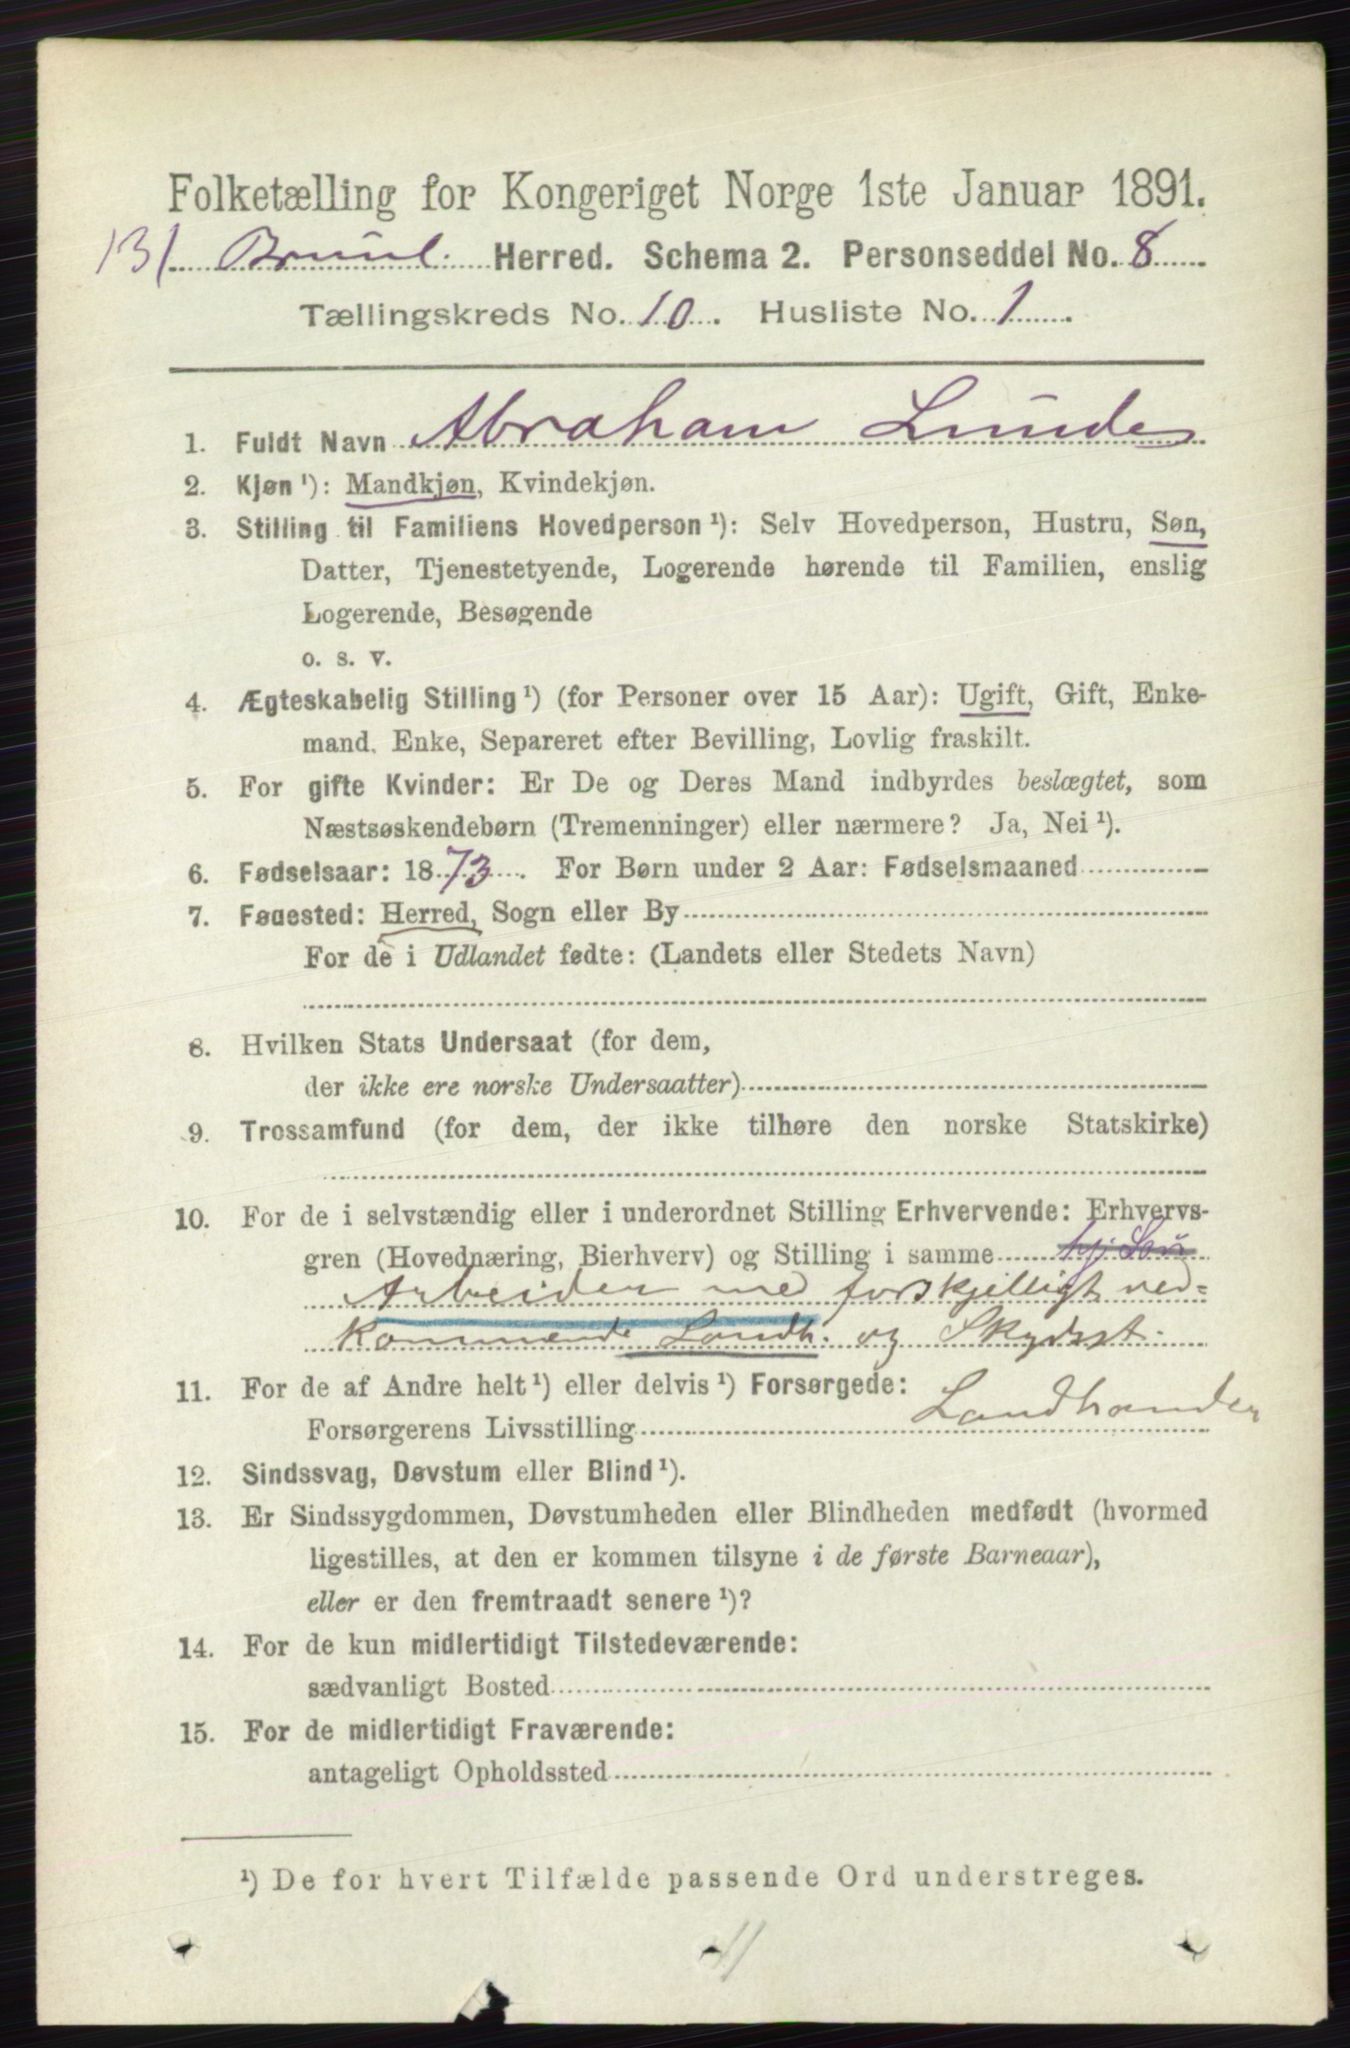 Folketælling for Kongeriget Norge 1ste Januar 1891.
131 Brunl. Herred. Schema 2. Personseddel No. 8
Tællingskreds No. 10. Husliste No. 1.
1. Fuldt Navn Abraham Lunde
2. Kjøn ¹): Mandkjøn, Kvindekjøn.
3. Stilling til Familiens Hovedperson ¹): Selv Hovedperson, Hustru, Søn,
Datter, Tjenestetyende, Logerende hørende til Familien, enslig
Logerende, Besøgende
o. s. v.
4. Ægteskabelig Stilling ¹) (for Personer over 15 Aar): Ugift, Gift, Enke-
mand, Enke, Separeret efter Bevilling, Lovlig fraskilt.
5. For gifte Kvinder: Er De og Deres Mand indbyrdes beslægtet, som
Næstsøskendebørn (Tremenninger) eller nærmere? Ja, Nei ¹).
6. Fødselsaar: 1873. For Børn under 2 Aar: Fødselsmaaned
7. Fødested: Herred, Sogn eller By
For de i Udlandet fødte: (Landets eller Stedets Navn)
8. Hvilken Stats Undersaat (for dem,
der ikke ere norske Undersaatter)
9. Trossamfund (for dem, der ikke tilhøre den norske Statskirke)
10. For de i selvstændig eller i underordnet Stilling Erhvervende: Erhvervs-
gren (Hovednæring, Bierhverv) og Stilling i samme hj. Søn
Arbeider med forskjelligt ved-
kommende Landh. og Skydsst.
11. For de af Andre helt ¹) eller delvis ¹) Forsørgede:
Forsørgerens Livsstilling Landhander
12. Sindssvag, Døvstum eller Blind ¹).
13. Er Sindssygdommen, Døvstumheden eller Blindheden medfødt (hvormed
ligestilles, at den er kommen tilsyne i de første Barneaar),
eller er den fremtraadt senere ¹)?
14. For de kun midlertidigt Tilstedeværende:
sædvanligt Bosted
15. For de midlertidigt Fraværende:
antageligt Opholdssted
¹) De for hvert Tilfælde passende Ord understreges.